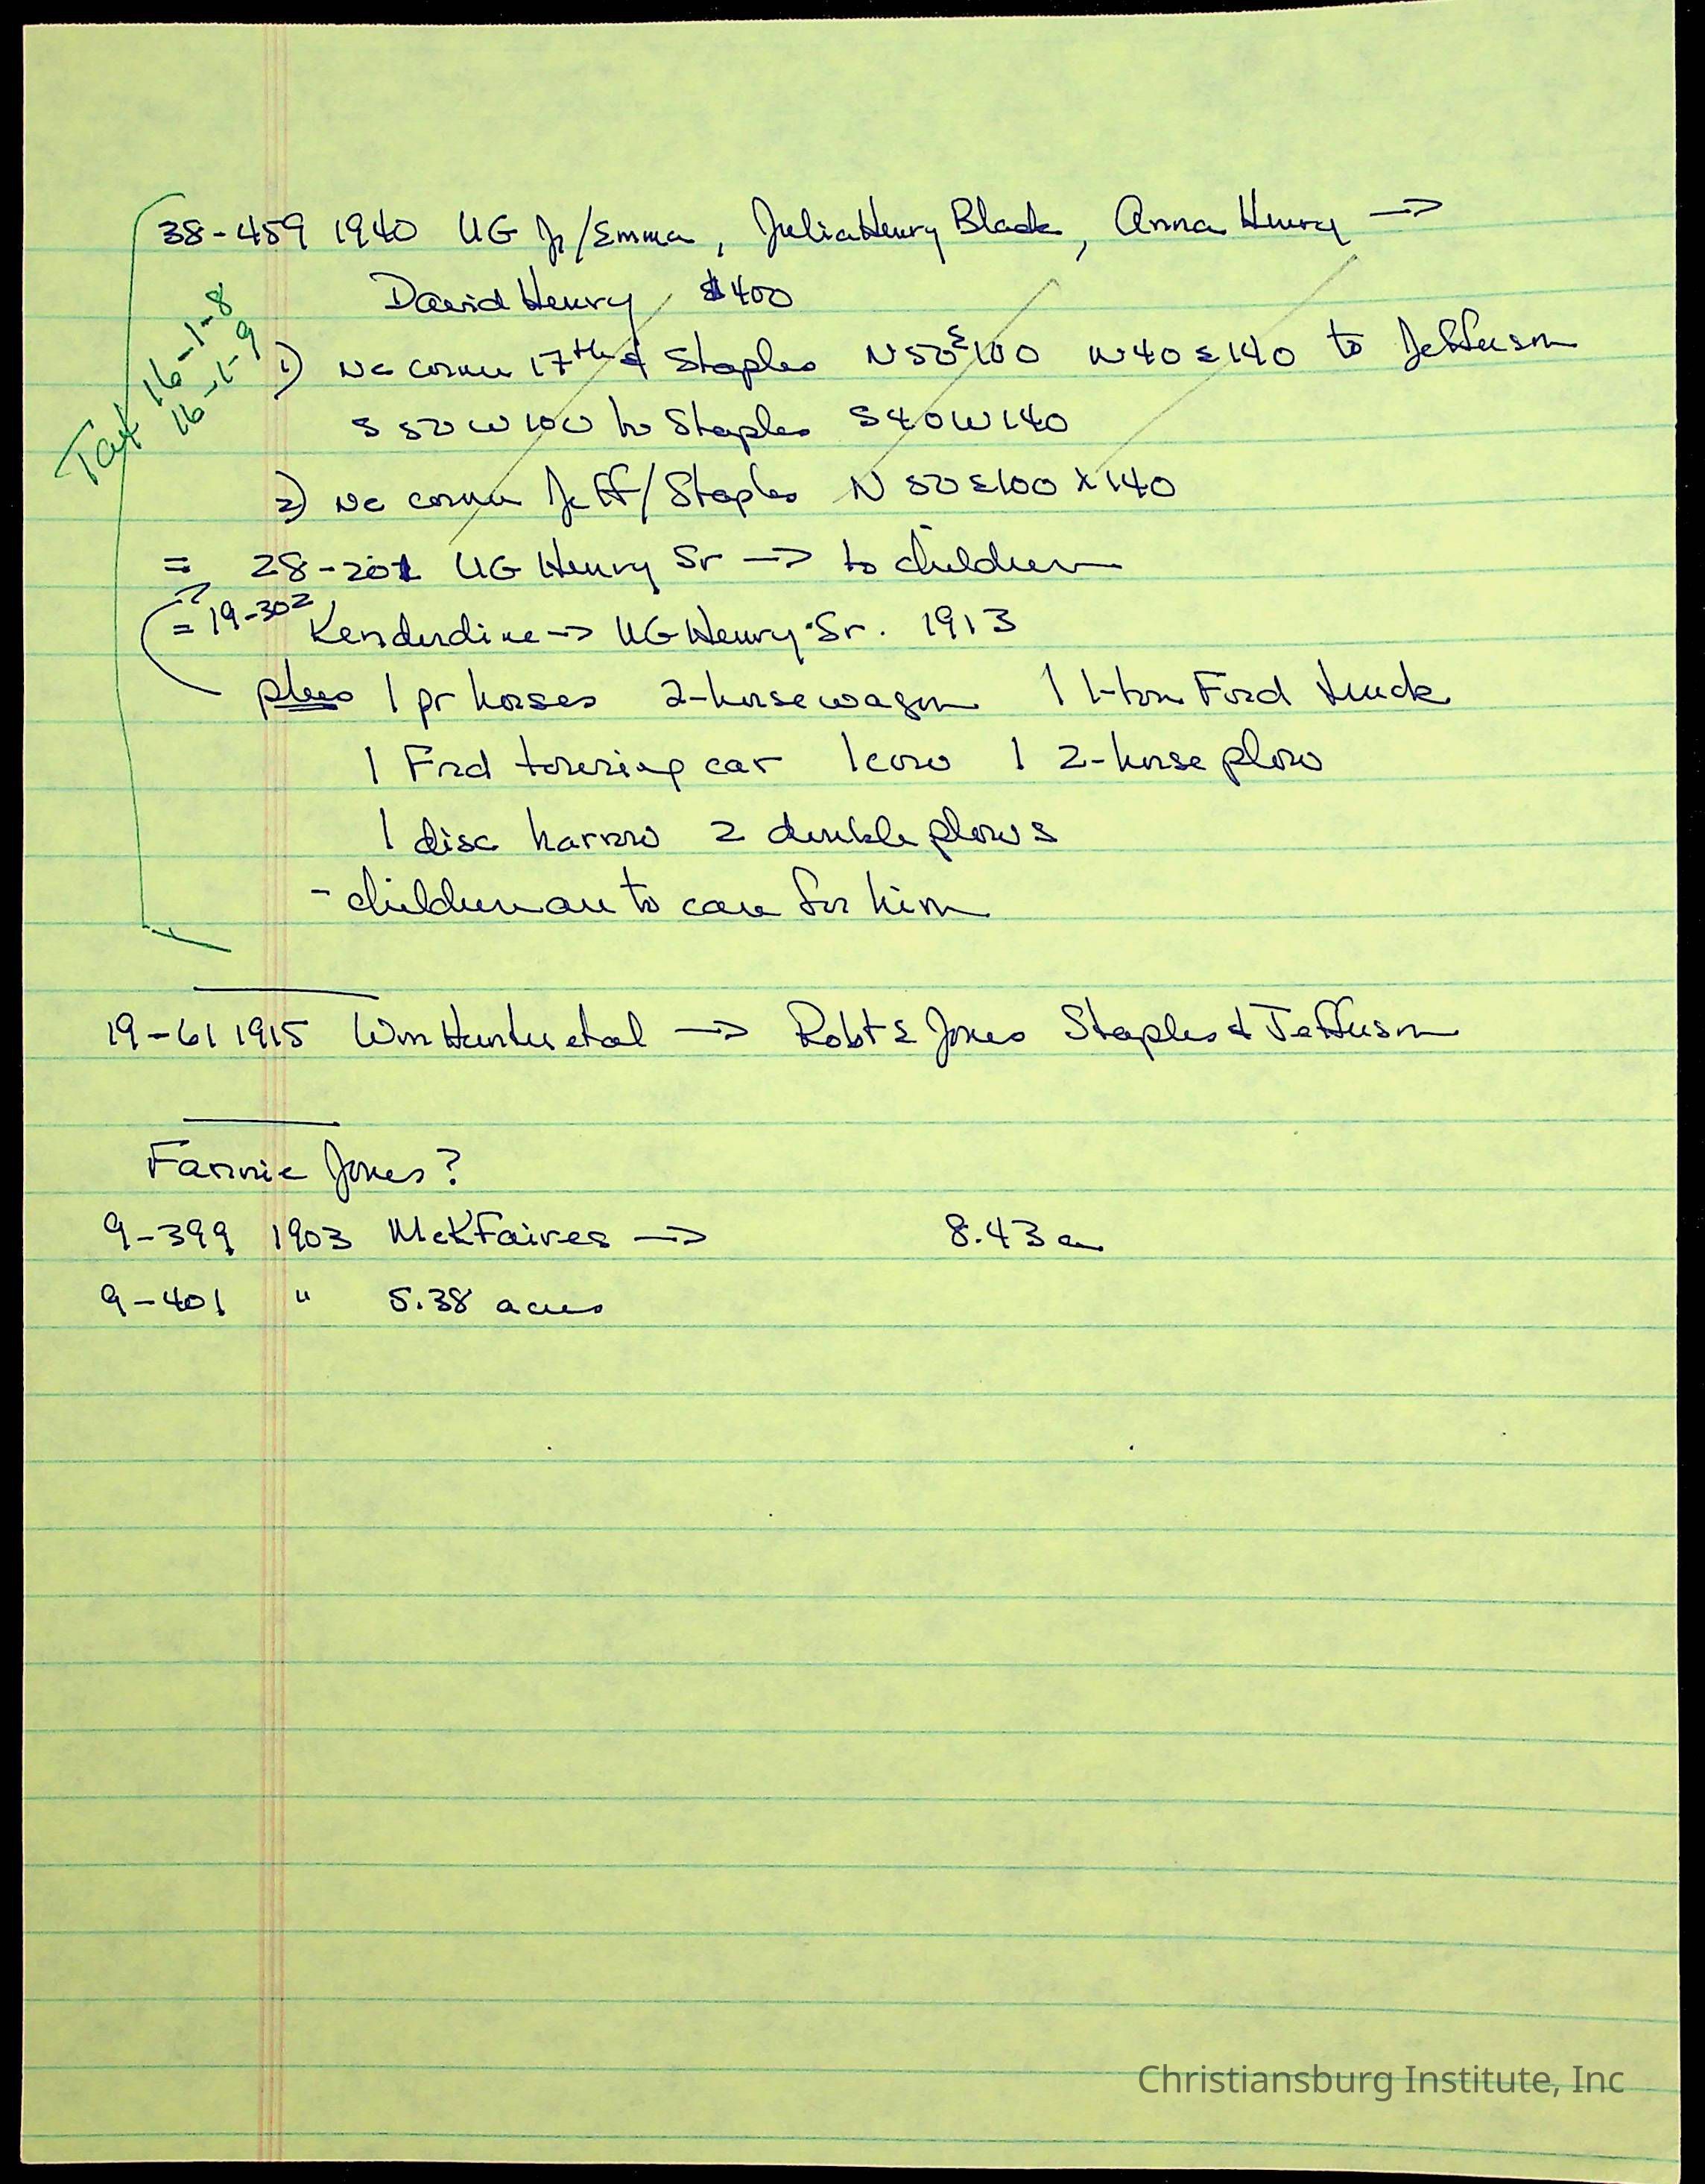 38-459 1940 UG Jr/Emma, Julia Henry Black, Anna Henry →
David Henry $400
Tax 16-1-8
16-1-9
1) NE corner 17th & Staples N50E100 N40E140 to Jefferson
S50W100 to Staples S40W140
2) NE corner Jeff/Staples N50E100x140
= 28-201 UG Henry Sr → to children
?
= 19-302 Kenderdine → UG Henry Sr. 1913
plus 1 pr horses 2-horse wagon 1 1-ton Ford truck
1 Ford touring car 1 cow 1 2-horse plow
1 disc harrow 2 double plows
- children are to care for him
19-61 1915 Wm Hunter et al → Robt E Jones Staples & Jefferson
Fannie Jones?
9-399 1903 McKFaires → 8.43 a
9-401 " 5.38 acres
Christiansburg Institute, Inc